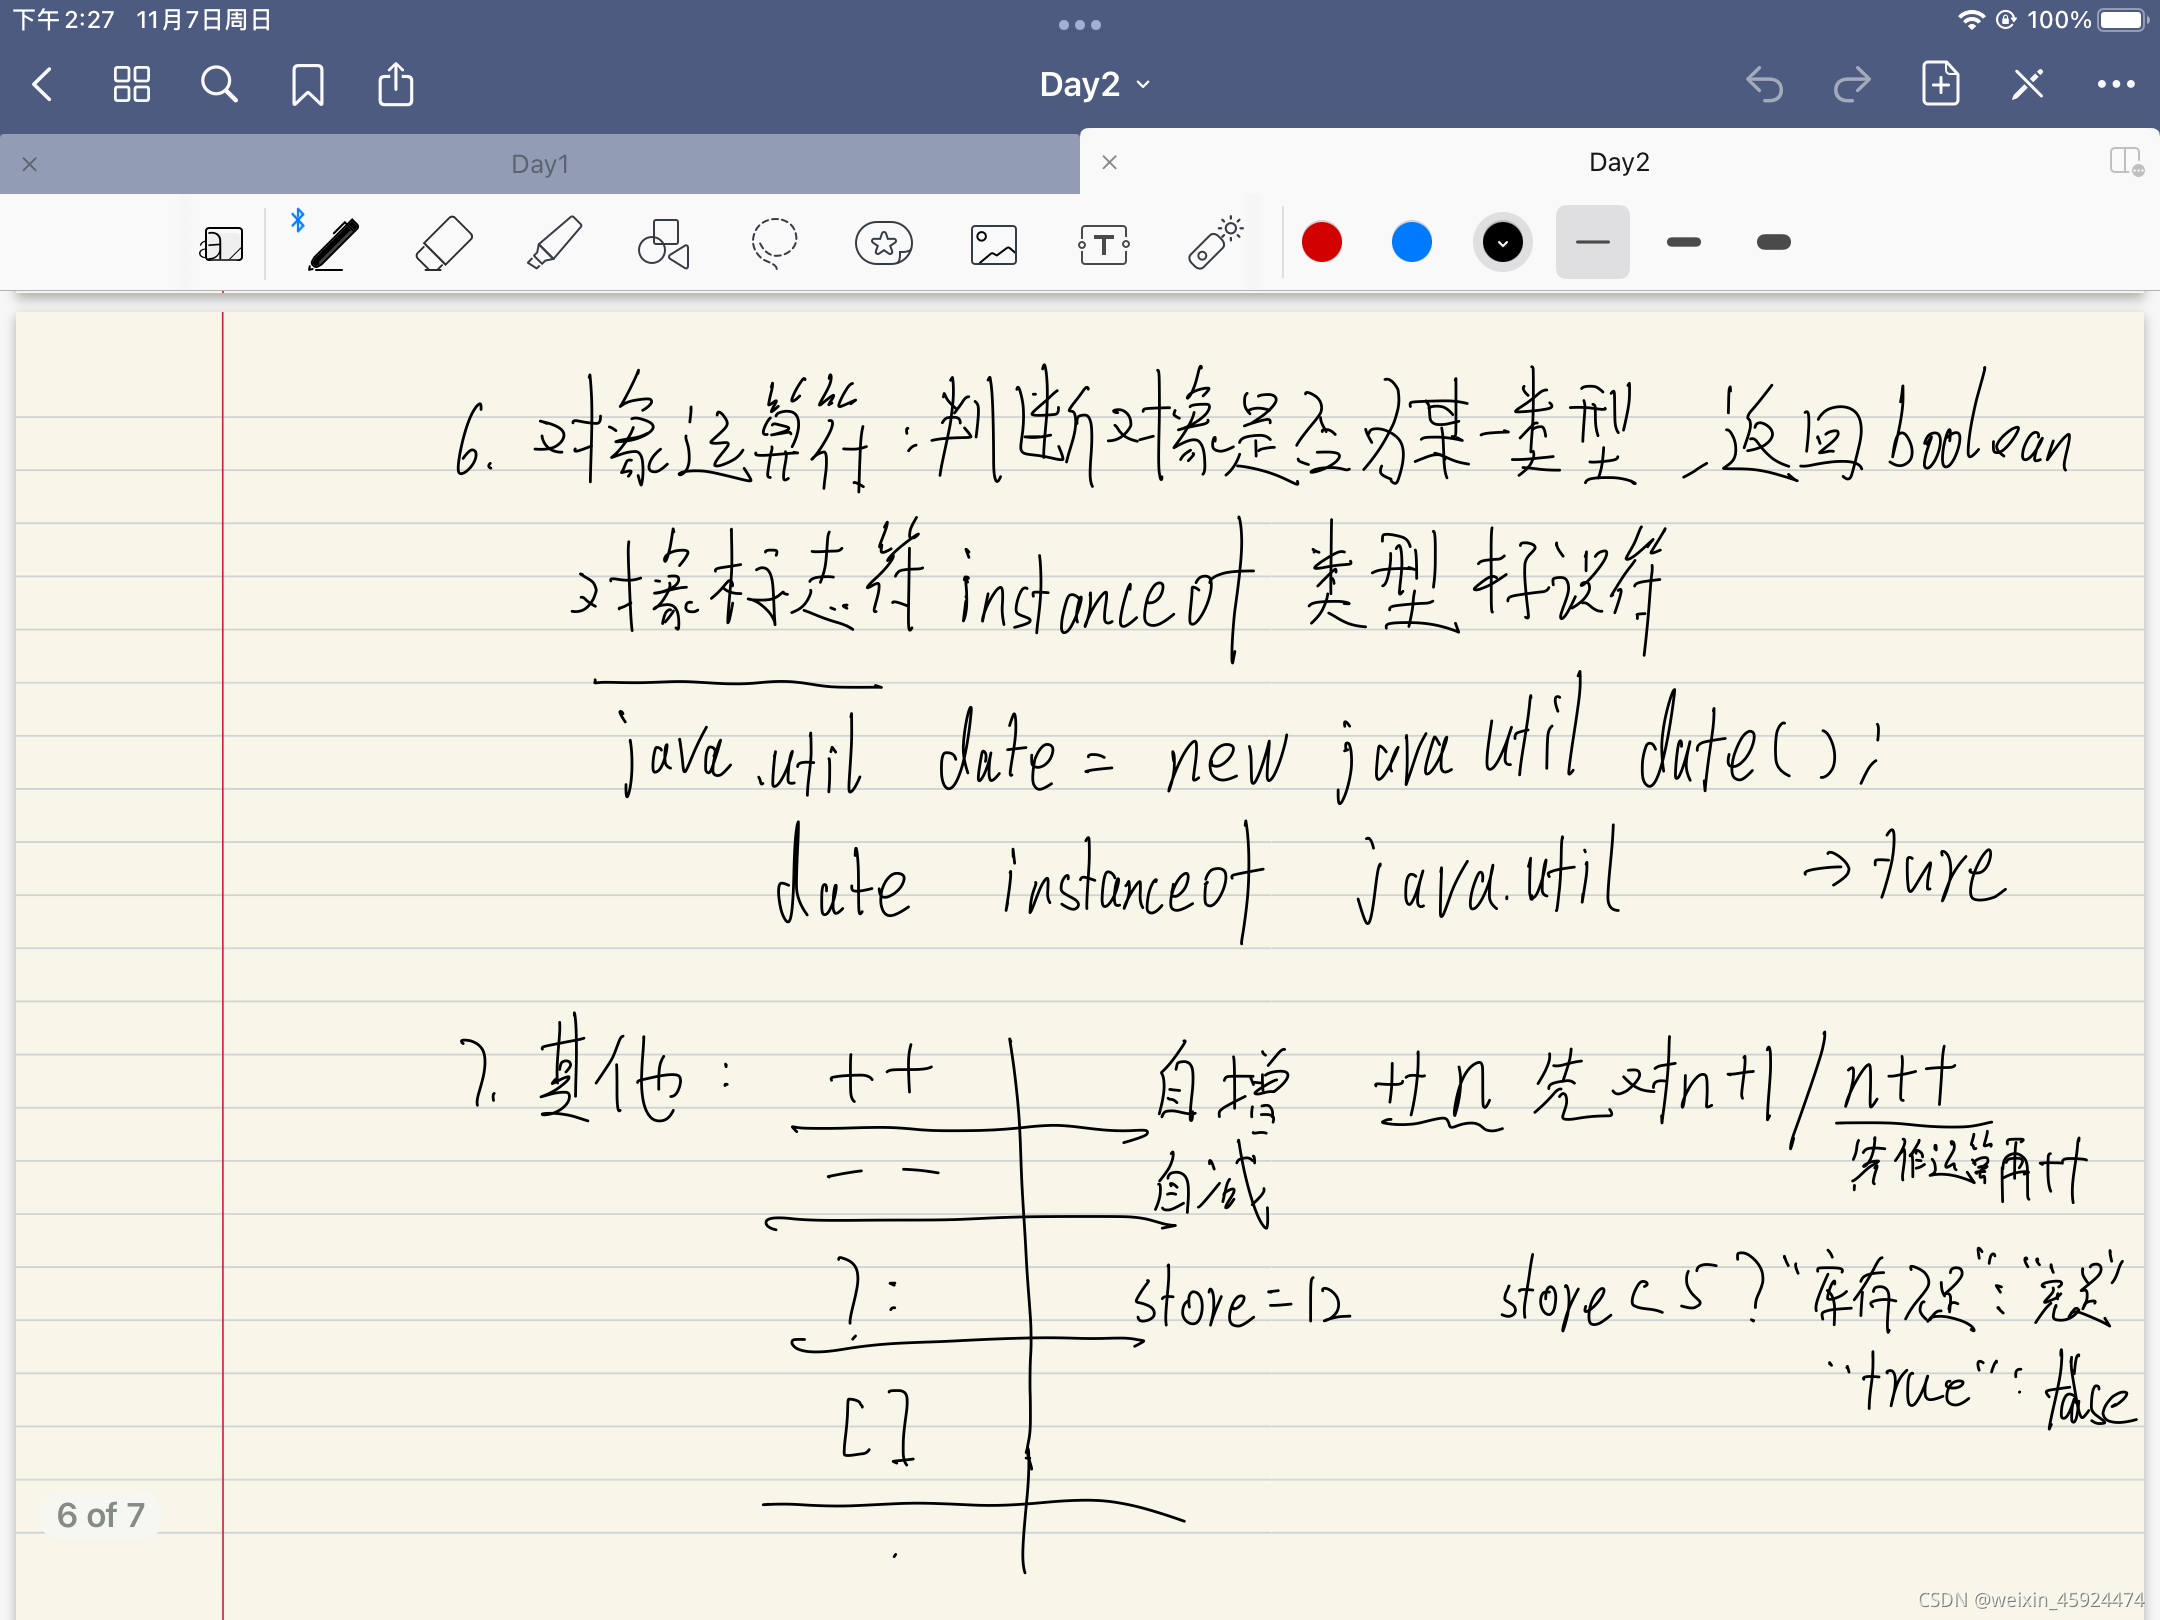 下午2:27 11月7日周日
100%
Day2
Day1
Day2
6. 对象运算符：判断对象是否为某一类型，返回boolean
对象标志符 instanceof 类型标识符
java.util date = new java util date();
date instanceof java.util → ture
7. 其他： ++ 自增 ++n 先对n+1 / n++
先作运算再++
-- 自减
?: store=12 store<5?"库存不足":"充足"
"true":false
[]
.
6 of 7
CSDN @weixin_45924474